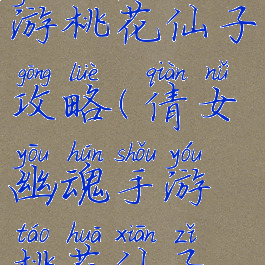 游桃花仙子
gōng lüè qiàn nǚ
攻略(倩女
yōu hún shǒu yóu
幽魂手游
táo huā xiān zǐ
桃花仙子